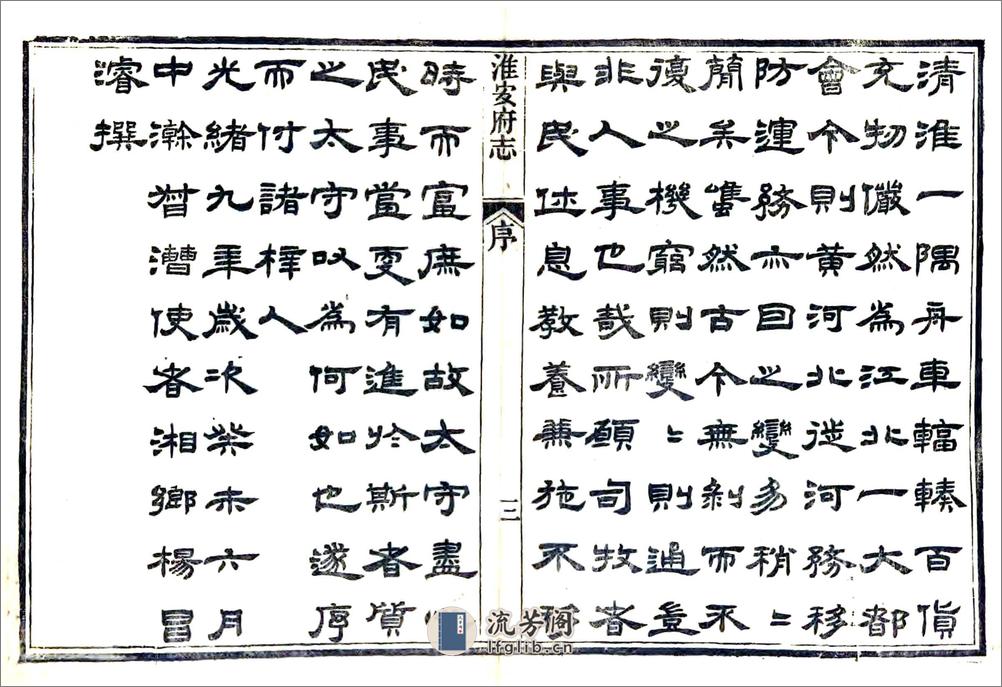 清淮一隅舟車輻輳百貨
充牣儼然為江北一大都
會今則黃河北徙河務移
防運務亦因之變易稍〻
簡矣雖然古今無剝而不
復之機窮則變〻則通豈
非人事也哉所願司牧者
與民休息教養兼施不
淮安府志
序
三
時而富庶如故太守盡
民事當更有進於斯者質
之太守以為何如也遂序
而付諸梓人
光緒九年歲次癸未六月
中澣督漕使者湘鄉楊昌
濬撰
流芳阁
lfglib.cn